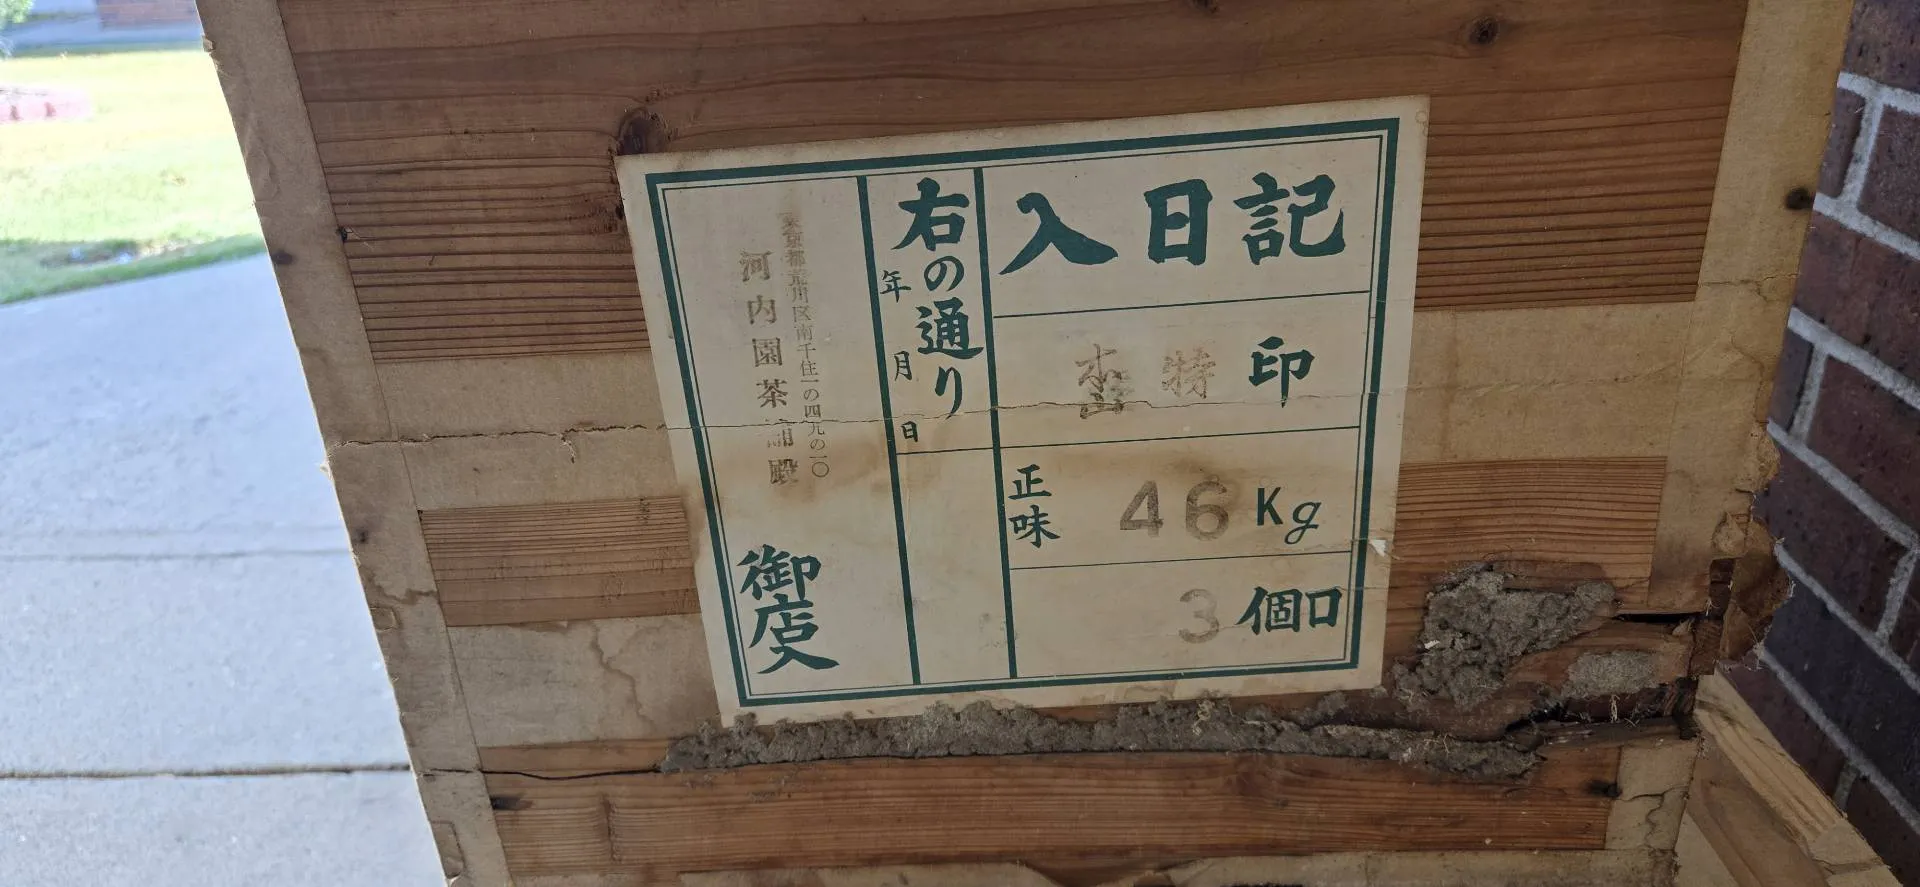 入日記
本山 特 印
正味 46 Kg
3 個口
右の通り
年 月 日
東京都荒川区南千住一の四九の一〇
河内園茶舗殿
御店入